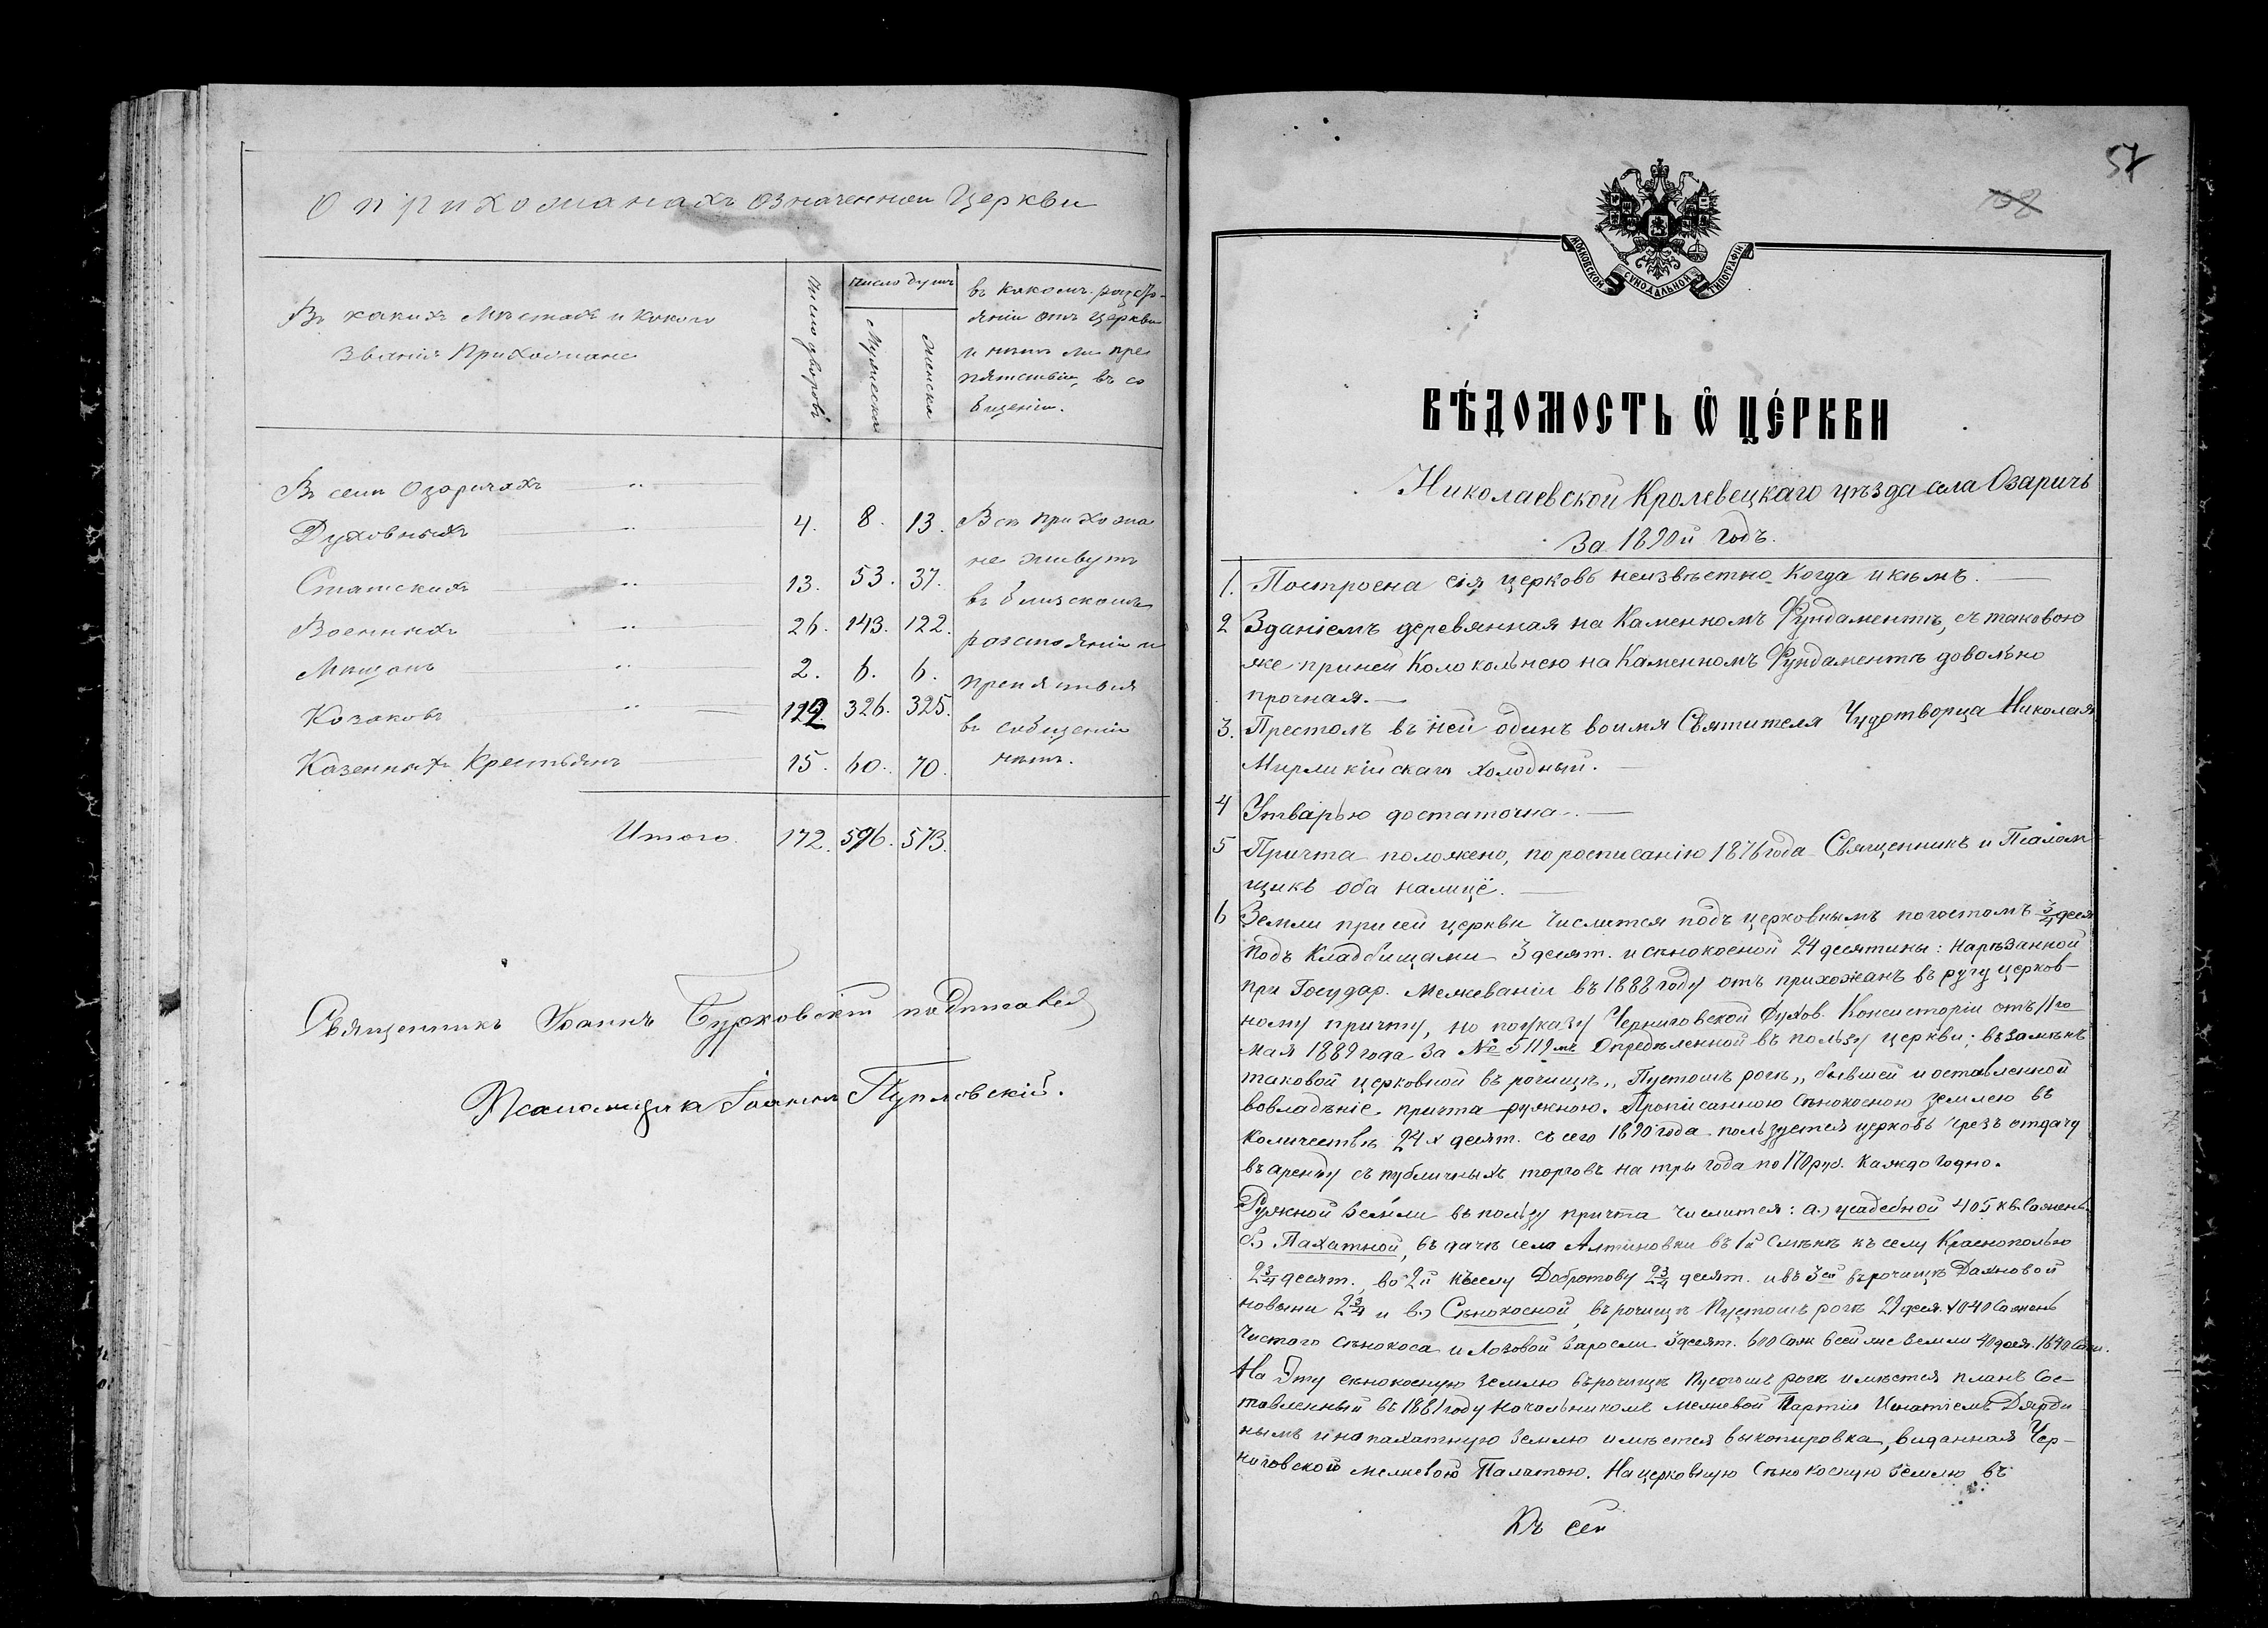 О прихожанахъ означенной Церкви
Въ какихъ мѣстахъ и какого
званія Прихожане
Число дворовъ
Число душъ
Мужеска
Женска
въ какомъ разсто-
яніи отъ Церкви
и нѣтъ ли пре
пятствія, въ со
бщеніи.
Въ селѣ Озаричахъ
Духовныхъ 4. 8. 13. Всѣ прихожа
Статскихъ 13. 53. 37. не живутъ
въ близкомъ
Военныхъ 26. 143. 122. разстояніи и
Мѣщанъ 2. 6. 6. препятствія
Козаковъ 112. 326. 325. въ сообщеніи
Казенныхъ Крестьянъ 15. 60. 70. нѣтъ.
Итого. 172. 596. 573.
Священникъ Іоаннъ Бурковскій
Псаломщикъ Іоаннъ
57
108
МОСКОВСКОЙ СѴНОДАЛЬНОЙ ТИПОГРАФІИ
ВѢДОМОСТЬ Ѿ ЦЕРКВИ
Николаевской Кролевецкаго уѣзда села Озаричъ
За 1890й годъ.
1. Построена сія церковь неизвѣстно когда и кѣмъ.
2 Зданіемъ деревянная на Каменномъ Фундаментѣ, съ таковою
же при ней Колокольнею на Каменномъ Фундаментѣ довольно
прочная.
3. Престолъ въ ней одинъ во имя Святителя Чудотворца Николая
Мирликійскаго холодный.
4 Утварью достаточна.
5 Причта положено, по росписанію 1876 года Священникъ и Псалом
щикъ оба налицѣ.
6 Земли при сей церкви числится подъ церковнымъ погостомъ 3/4 деся
подъ Кладбищами 3 десят. и сѣнокосной 24 десятины: нарѣзанной
при Государ. Межеваніи въ 1888 году отъ прихожанъ въ ругу церков-
ному причту, но по указу Черниговской Духов. Консисторіи отъ 11го
мая 1889 года за № 5119мъ Опредѣленной въ пользу церкви; взамѣнъ
таковой церковной въ рочищѣ „Пустошъ рогъ„ бывшей и оставленной
во владѣніе причта ружною. Прописанною Сѣнокосною землею въ
Количествѣ 24х десят. съ сего 1890 года пользуется церковь чрезъ отдачу
въ аренду съ публичныхъ торговъ на три года по 170 руб. каждогодно.
Ружной земли въ пользу причта числится: а.) усадебной 405 кв. сажень
б.) Пахатной, въ дачѣ села Алтиновки въ 1й смѣнѣ къ селу Краснополью
2 3/4 десят., во 2й къ селу Добротову 2 3/4 десят. и въ 3ей въ рочищѣ
новыни 2 3/4 и в.) Сѣнокосной, въ рочищѣ Пустошъ рогъ 29 деся. 1040 сажень
чистого сѣнокоса и лозовой заросли 3 десят. 600 саж всей же земли 40 деся. 1640 саж.
На эту сѣнокосную землю въ рочищѣ Пустошъ рогъ имѣется планъ сос-
тавленный въ 1881 году Начальникомъ межевой Партіи Игнатіемъ
нымъ и на пахатную землю имѣется выкопировка, виданная Чер-
ниговской межевою Палатою. На церковную сѣнокосную землю въ
Къ сей